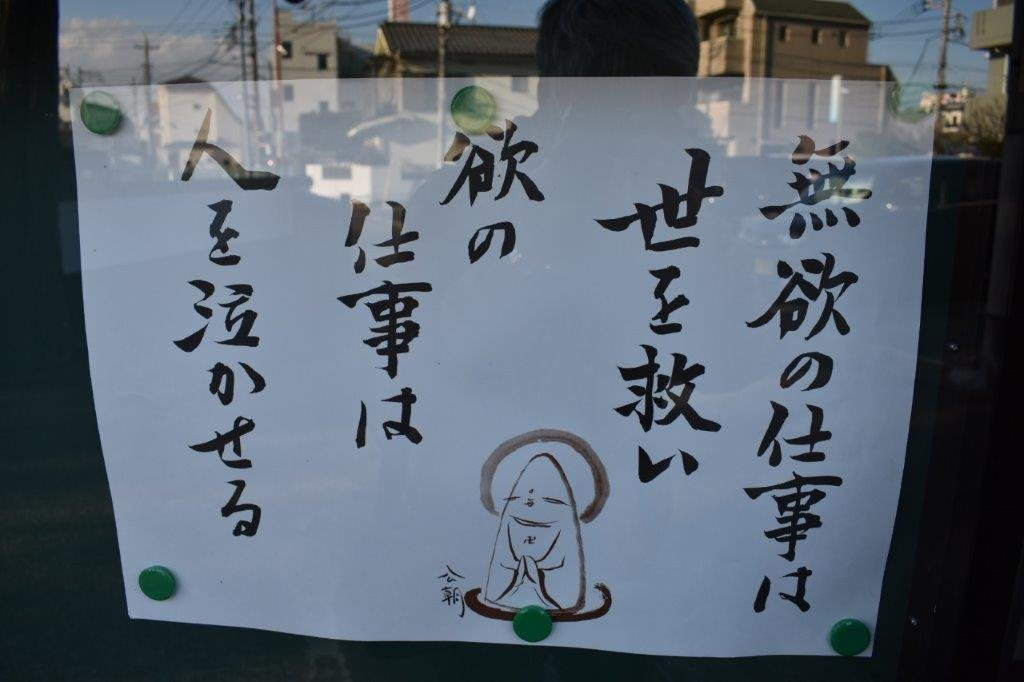 無欲の仕事は
世を救い
欲の
仕事は
人を泣かせる
公朝
卍